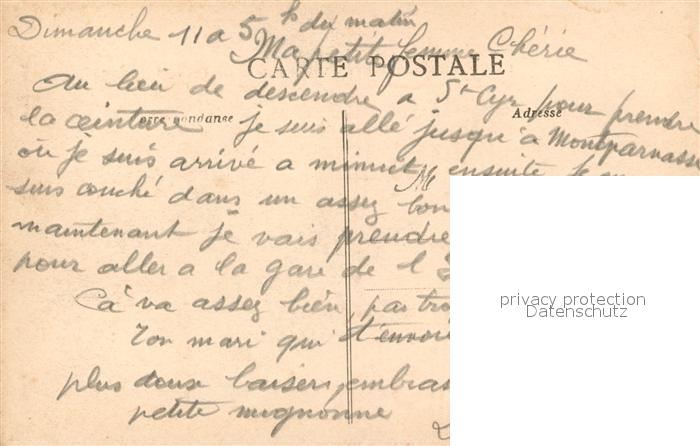 Dimanche 11 a 5 h du matin
Ma petite femme Chérie
CARTE POSTALE
Au lieu de descendre a St Cyr pour prendre
Correspondance
Adresse
la ceinture je suis allé jusqu'à Montparnasse
où je suis arrivé a minuit, ensuite je
M
suis couché dans un assez bon
maintenant je vais prendre
pour aller a la gare de l
privacy protection
Datenschutz
Ca va assez bien, pas tro
Ton mari qui t'envoie
plus doux baisers, embras
petite mignonne